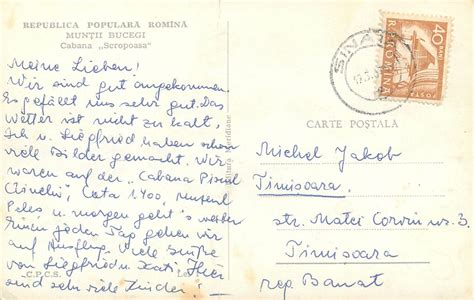 REPUBLICA POPULARĂ ROMÎNĂ
MUNȚII BUCEGI
Cabana „Scropoasa”
Meine Lieben!
Wir sind gut angekommen.
Es gefällt uns sehr gut. Das
Wetter ist nicht zu kalt,
Ich u. Siegfried haben schon
viele Bilder gemacht. Wir
waren auf der „Cabana Piscul
Cîinelui”, Cota 1400, Museul
Peleș u. morgen geht's weiter
Einen jeden Tag gehen wir
auf Ausflug. Viele Grüße
von Siegfried u. Kati. Hier
sind sehr viele Kinder!
C.P.C.S.
SINAIA
40 BANI
R.P. ROMINA
POSTA
CARTE POȘTALĂ
Michel Jakob
Timișoara
str. Matei Corvin nr. 3
Timișoara
reg. Banat